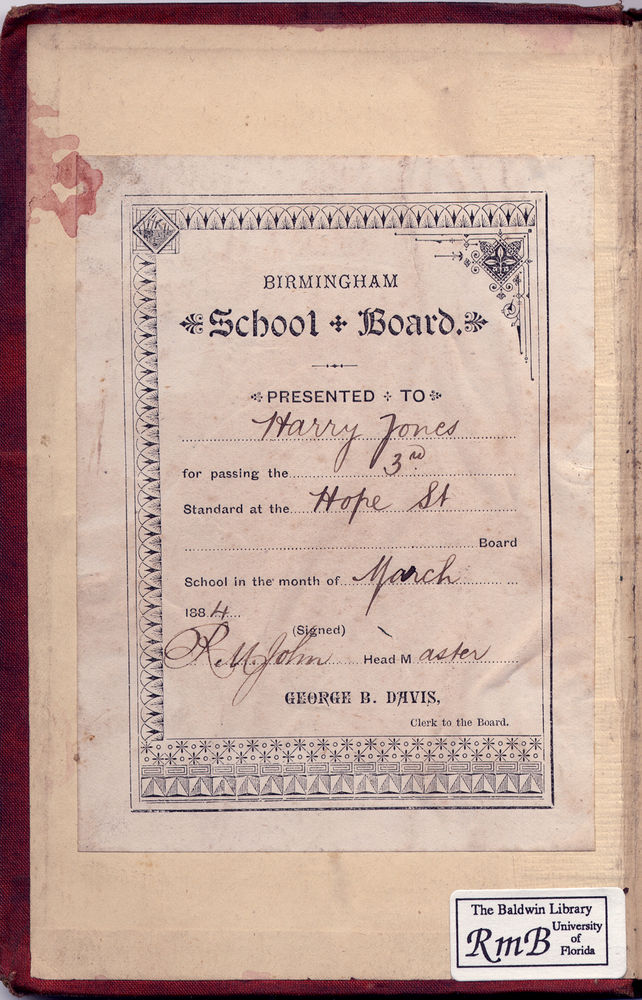 BIRMINGHAM
School Board.
PRESENTED TO
Harry Jones
for passing the 3rd
Standard at the Hope St
Board
School in the month of March
1884
(Signed)
R. M. John Head Master
GEORGE B. DAVIS,
Clerk to the Board.
The Baldwin Library
RmB University
of
Florida